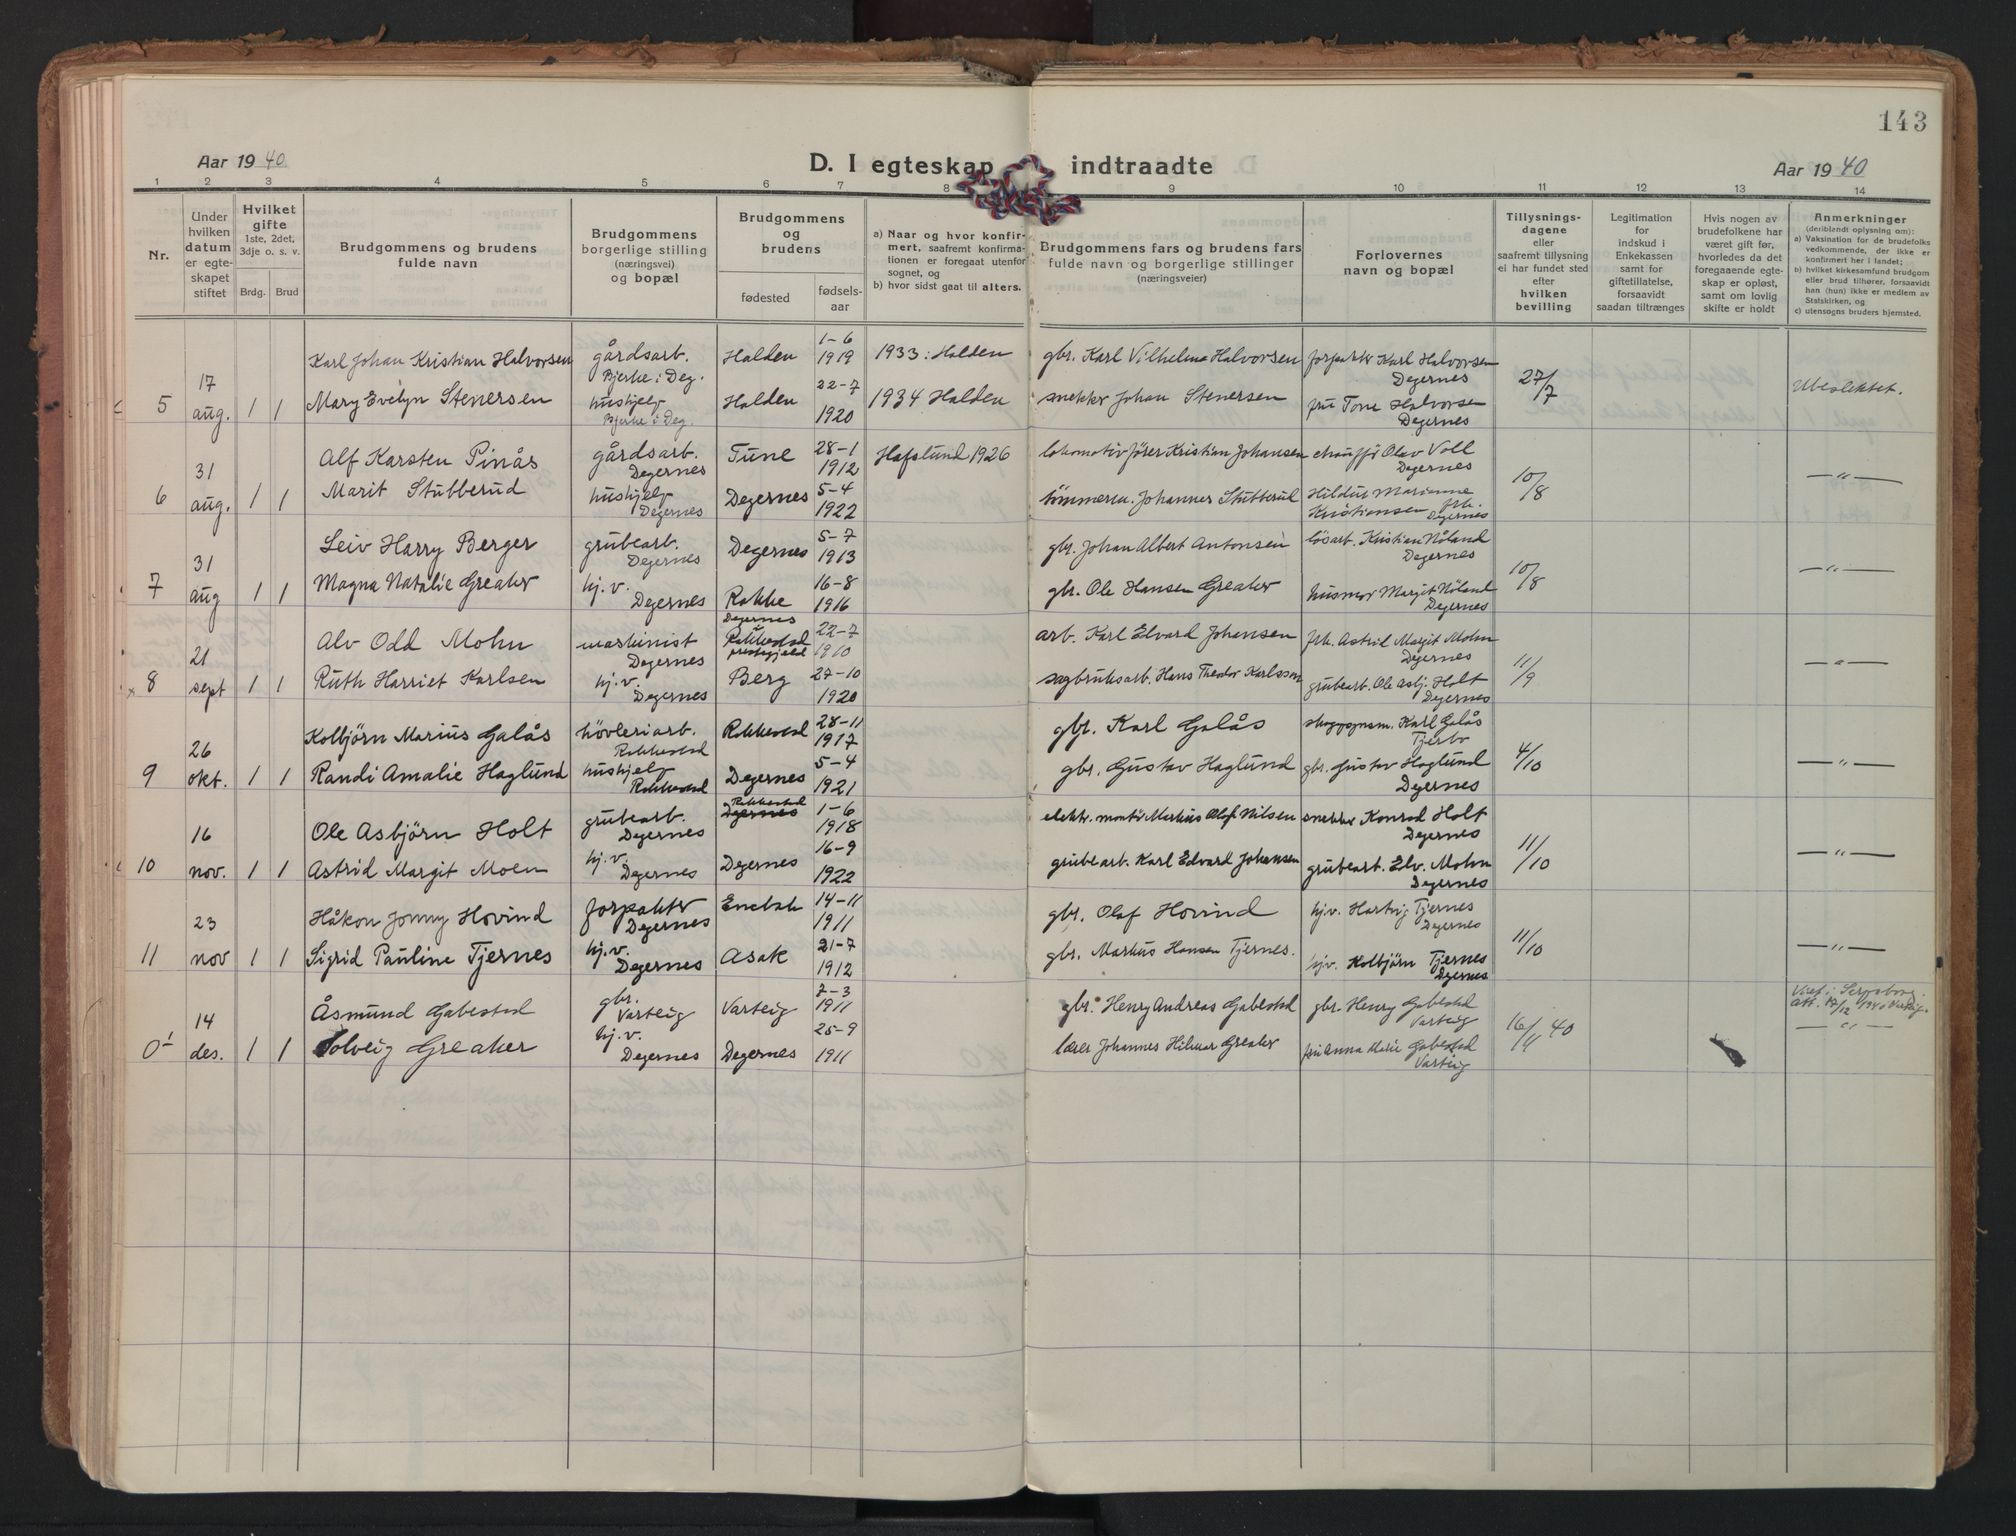 143
Aar 1940. D. I egteskap indtraadte Aar 1940
1 2 3 4 5 6 7 8 9 10 11 12 13 14
Nr.
Under hvilken datum er egteskapet stiftet
Hvilket gifte 1ste, 2det, 3dje o. s. v.
Brdg. Brud
Brudgommens og brudens fulde navn
Brudgommens borgerlige stilling (næringsvei) og bopæl
Brudgommens og brudens
fødested
fødselsaar
a) Naar og hvor konfirmert, saafremt konfirmationen er foregaat utenfor sognet, og
b) hvor sidst gaat til alters.
Brudgommens fars og brudens fars fulde navn og borgerlige stillinger (næringsveier)
Forlovernes navn og bopæl
Tillysningsdagene eller saafremt tillysning ei har fundet sted efter hvilken bevilling
Legitimation for indskud i Enkekassen samt for giftetillatelse, forsaavidt saadan tiltrænges
Hvis nogen av brudefolkene har været gift før, hvorledes da det foregaaende egteskap er opløst, samt om lovlig skifte er holdt
Anmerkninger (deriblandt oplysning om):
a) Vaksination for de brudefolks vedkommende, der ikke er konfirmert her i landet;
b) hvilket kirkesamfund brudgom eller brud tilhører, forsaavidt han (hun) ikke er medlem av Statskirken, og
c) utensogns bruders hjemsted.
Karl Johan Kristian Halvorsen gårdsarb. Bjerke i Deg. Halden 1-6 1919 1933: Halden gbr. Karl Vilhelm Halvorsen forpakter Karl Halvorsen Degernes
5 17 aug. 1 1 Mary Evelyn Stenersen hushjelp Bjerke i Deg. Halden 22-7 1920 1934 Halden snekker Johan Stenersen fru Tone Halvorsen Degernes 27/7 Ubeslektet.
Alf Karsten Pinås gårdsarb. Degernes Tune 28-1 1912 Hafslund 1926 lokomotivfører Kristian Johansen chauffør Olav Voll Degernes
6 31 aug. 1 1 Marit Stubberud hushjelp Degernes Degernes 5-4 1922 tømmerm. Johannes Stubberud Hildur Marianne Kristiansen frk. Degernes 10/8 — " —
Leiv Harry Berger grubearb. Degernes Degernes 5-7 1913 gbr. Johan Albert Antonsen løsarb. Kristian Nøland Degernes
7 31 aug 1 1 Magna Natalie Greaker hj.v. Degernes Rakke 16-8 1916 gbr. Ole Hansen Greaker husmor Margit Nøland Degernes 10/8 — " —
Alv Odd Mohn maskinist Degernes Degernes i Rakkestad prestegjeld 22-7 1910 arb. Karl Edvard Johansen frk. Astrid Margit Mohn Degernes
x 8 21 sept 1 1 Ruth Harriet Karlsen hj.v. Degernes Berg 27-10 1920 sagbruksarb. Hans Theodor Karlsson grubearb. Ole Asbj. Holt Degernes 11/9 — " —
Kolbjørn Marius Galås høvleriarb. Rakkestad Rakkestad 28-11 1917 gbr. Karl Galås Karl Galås
9 26 okt. 1 1 Randi Amalie Haglund hushjelp Rakkestad Degernes 5-4 1921 gbr. Gustav Haglund gbr. Gustav Haglund Degernes 4/10 — " —
Ole Asbjørn Holt grubearb. Degernes Rakkestad Degernes 1-6 1918 elektr. montør Markus Olaf Nilsen snekker Konrad Holt Degernes
10 16 nov. 1 1 Astrid Margit Moen hj.v. Degernes Degernes 16-9 1922 grubearb. Karl Edvard Johansen grubearb. Edv. Mohn Degernes 11/10 — " —
Håkon Jonny Hovind forpakter Degernes Enebak 14-11 1911 gbr. Olaf Hovind hjv. Hartvig Tjernes Degernes
11 23 nov 1 1 Sigrid Pauline Tjernes hj.v. Degernes Asak 21-7 1912 gbr. Markus Hansen Tjernes. hjv. Kolbjørn Tjernes Degernes 11/10 — " —
Åsmund Gabestad gbr. Varteig Varteig 7-3 1911 gbr. Henry Andreas Gabestad gbr. Henry Gabestad Varteig Viet i Sarpsborg. Att. 17/12
0 1 14 des. 1 1 Solveig Greaker hj.v. Degernes Degernes 25-9 1911 lærer Johannes Hilmar Greaker fru Anna Marie Gabestad Varteig 16/11 40 — " —